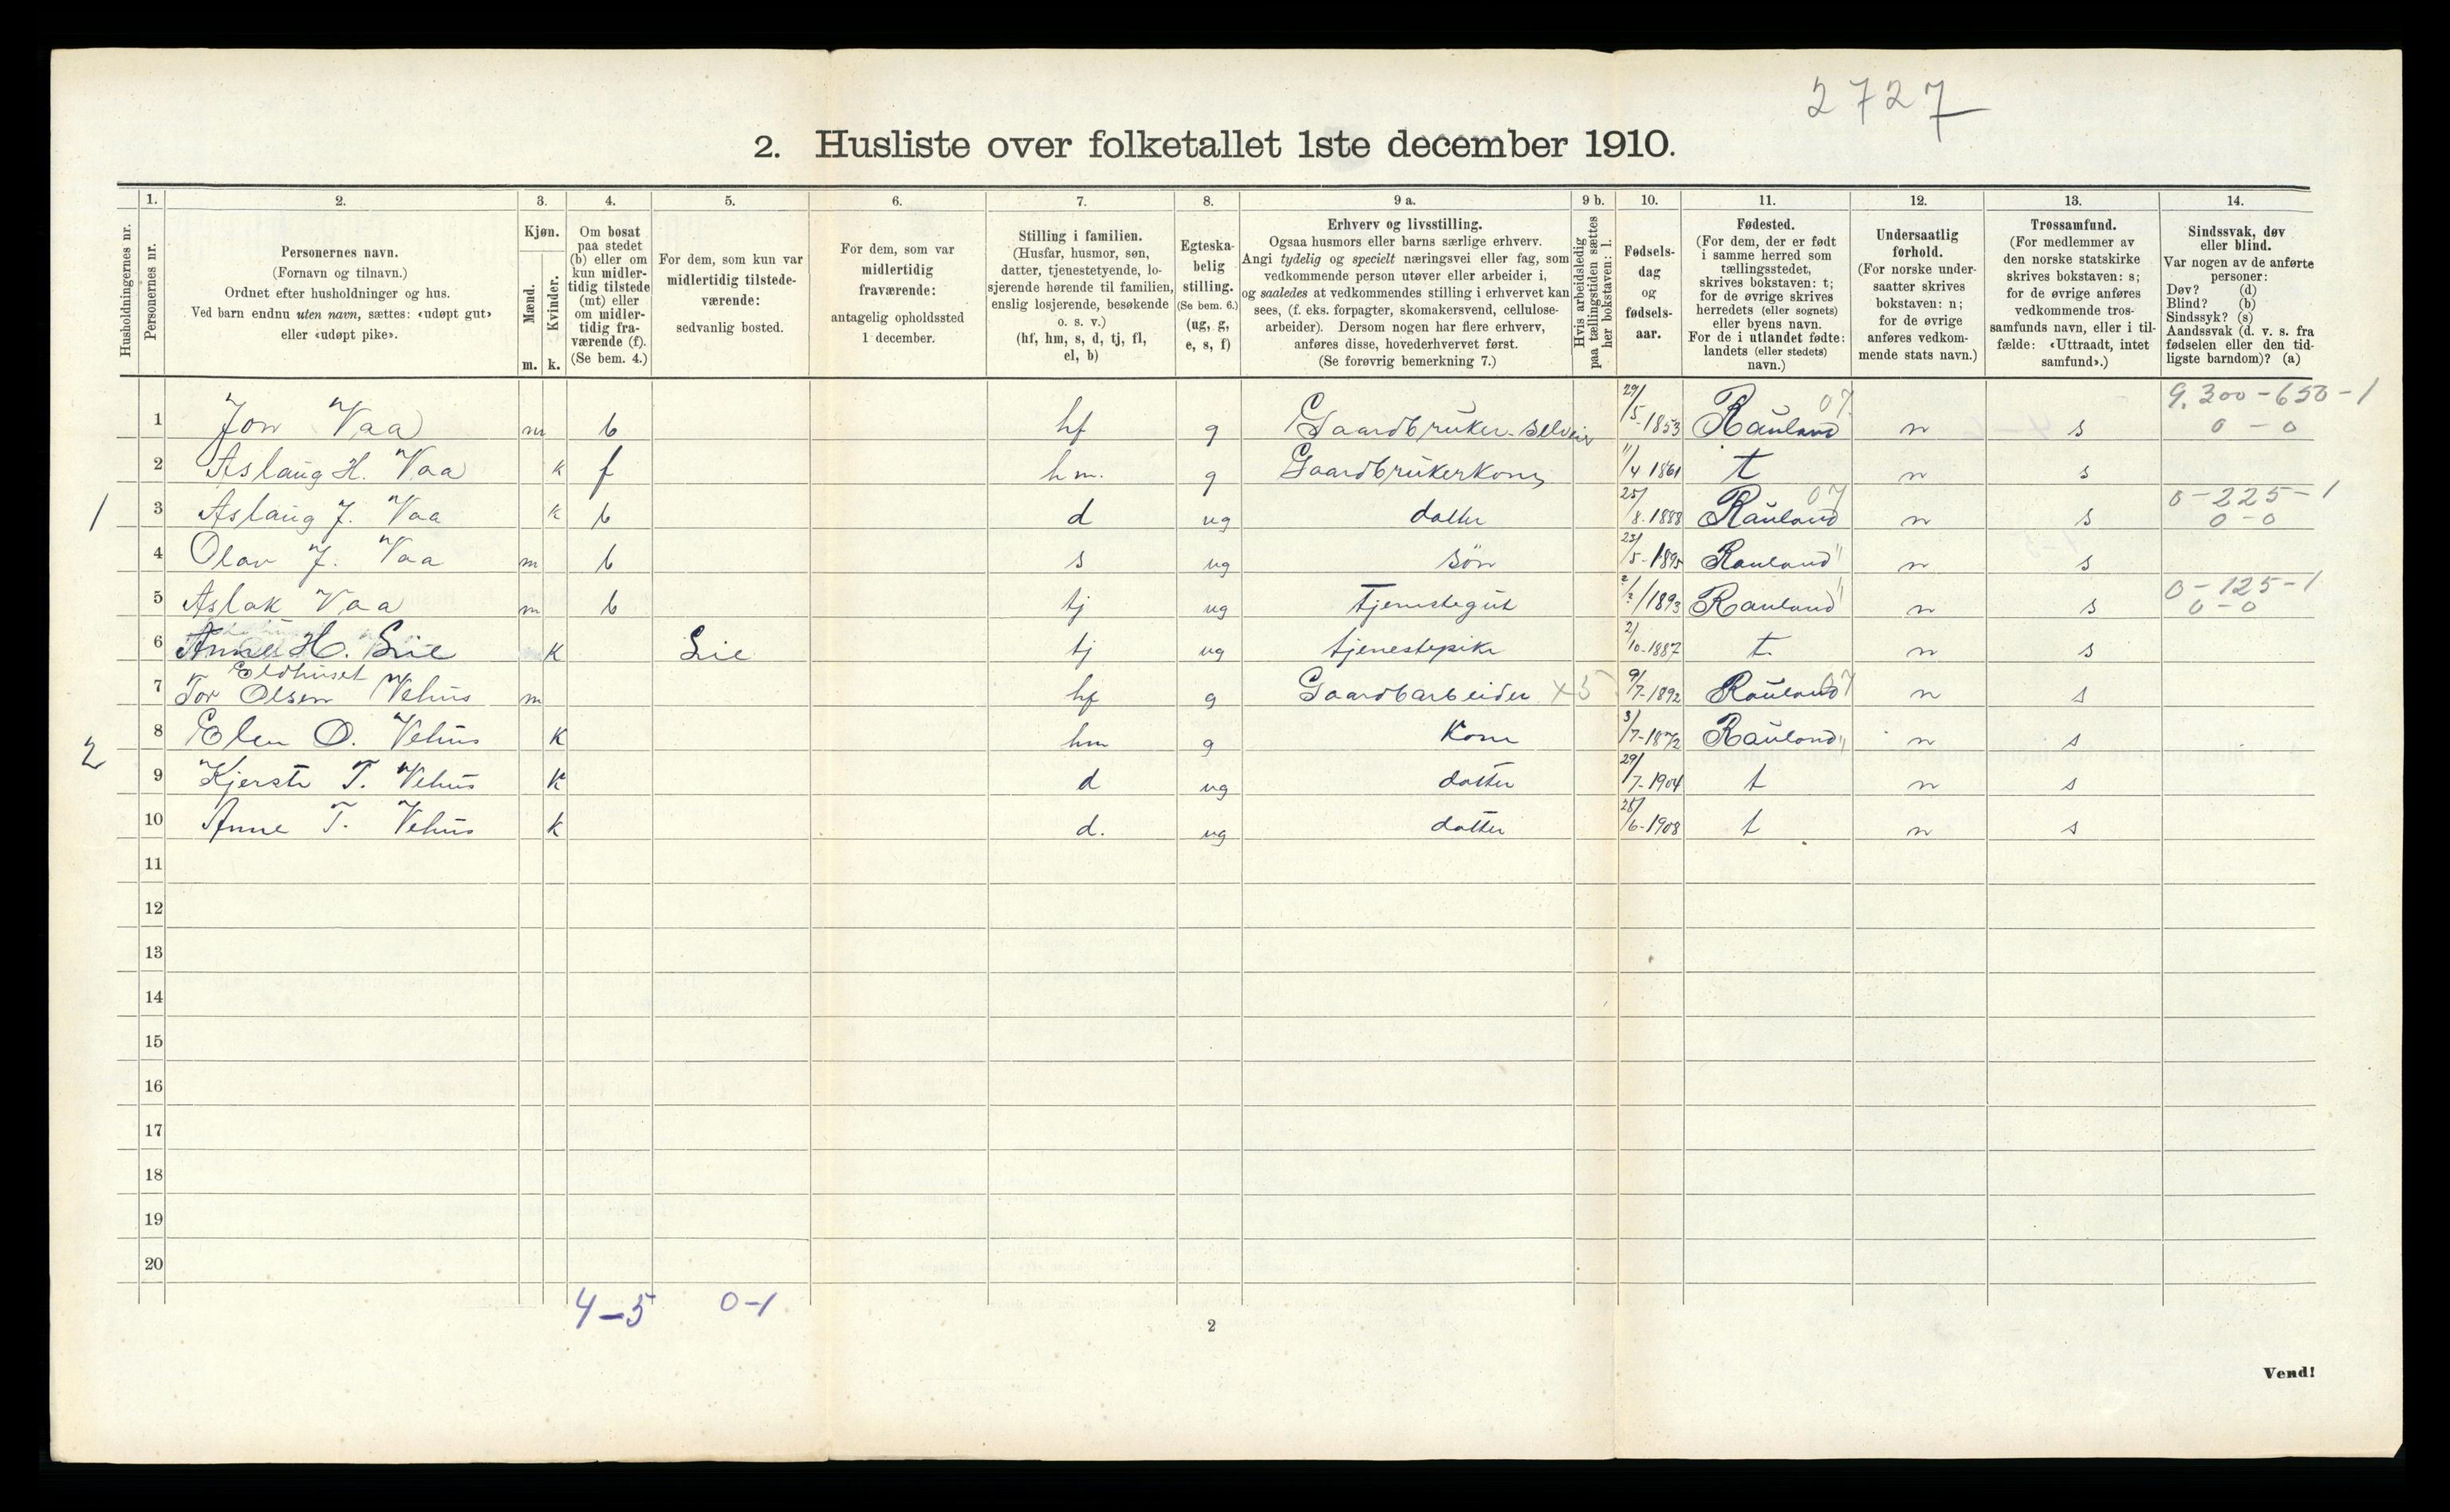 2727
2. Husliste over folketallet 1ste december 1910.
Husholdningernes nr.
1. Personernes nr.
2. Personernes navn.
(Fornavn og tilnavn.)
Ordnet efter husholdninger og hus.
Ved barn endnu uten navn, sættes: «udøpt gut»
eller «udøpt pike».
3. Kjøn.
Mænd. Kvinder.
m. k.
4. Om bosat
paa stedet
(b) eller om
kun midler-
tidig tilstede
(mt) eller
om midler-
tidig fra-
værende (f).
(Se bem. 4.)
5. For dem, som kun var
midlertidig tilstede-
værende:
sedvanlig bosted.
6. For dem, som var
midlertidig
fraværende:
antagelig opholdssted
1 december.
7. Stilling i familien.
(Husfar, husmor, søn,
datter, tjenestetyende, lo-
sjerende hørende til familien,
enslig losjerende, besøkende
o. s. v.)
(hf, hm, s, d, tj, fl,
el, b)
8. Egteska-
belig
stilling.
(Se bem. 6.)
(ug, g,
e, s, f)
9 a. Erhverv og livsstilling.
Ogsaa husmors eller barns særlige erhverv.
Angi tydelig og specielt næringsvei eller fag, som
vedkommende person utøver eller arbeider i,
og saaledes at vedkommendes stilling i erhvervet kan
sees, (f. eks. forpagter, skomakersvend, cellulose-
arbeider). Dersom nogen har flere erhverv,
anføres disse, hovederhvervet først.
(Se forøvrig bemerkning 7.)
9 b. Hvis arbeidsledig
paa tællingstiden sættes
her bokstaven: l.
10. Fødsels-
dag
og
fødsels-
aar.
11. Fødested.
(For dem, der er født
i samme herred som
tællingsstedet,
skrives bokstaven: t;
for de øvrige skrives
herredets (eller sognets)
eller byens navn.
For de i utlandet fødte:
landets (eller stedets)
navn.)
12. Undersaatlig
forhold.
(For norske under-
saatter skrives
bokstaven: n;
for de øvrige
anføres vedkom-
mende stats navn.)
13. Trossamfund.
(For medlemmer av
den norske statskirke
skrives bokstaven: s;
for de øvrige anføres
vedkommende tros-
samfunds navn, eller i til-
fælde: «Uttraadt, intet
samfund».)
14. Sindssvak, døv
eller blind.
Var nogen av de anførte
personer:
Døv? (d)
Blind? (b)
Sindssyk? (s)
Aandssvak (d. v. s. fra
fødselen eller den tid-
ligste barndom)? (a)
9.300-650-1
1 Jon Vaa m b hf g Gaardbruker-selveier 29/5-1853 Rauland 07 n s 0-0
2 Aslaug H. Vaa k f hm. g Gaardbrukerkone 11/4 1861 t n s
0-225-1
1 3 Aslaug J. Vaa k b d ug datter 25/8.1888 Rauland 07 n s 0-0
4 Olav J. Vaa m b s ug søn 23/5-1895 Rauland " n s
0-125-1
5 Aslak Vaa m b tj ug Tjenestegut ?/? 1893 Rauland " n s 0-0
6 H. Lie k Lie tj ug tjenestepike 2/10-1887 t. n s
Eldhuset
7 Tor Olsen Vehus m hf g Gaardbarbeider x5 9/7-1892 Rauland 07 n s
2 8 Elen O. Vehus k hm g Kone 3/7-1872 Rauland " n s
9 Kjersti T. Vehus k d ug datter 29/7-1904 t n s
10 Anne T. Vehus k d. ug datter 28/6-1908 t n s
11
12
13
14
15
16
17
18
19
20
4-5 0-1
2
Vend!